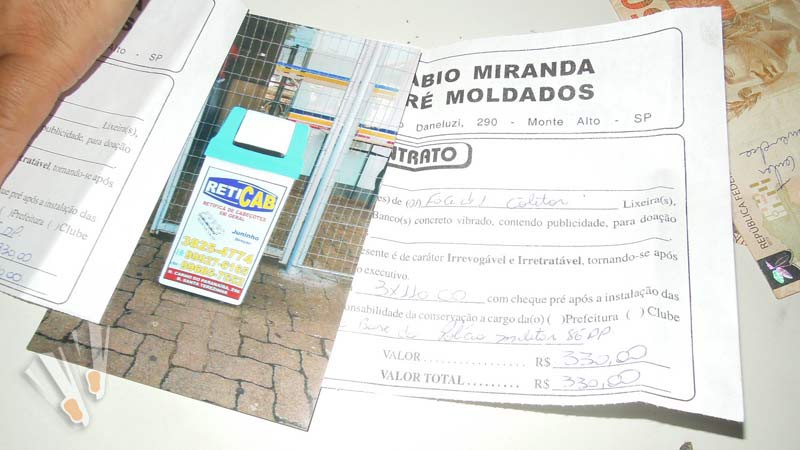 - SP
Lixeira(s),
publicidade, para doação
Irretratável, tornando-se após
cheque pré após a instalação das
)Prefeitura ( )Clube
330,00
RETICAB
RETÍFICA DE CABEÇOTES
EM GERAL
Juninho
R. CARMO DO PARANAÍBA,
B. SANTA TEREZINHA
ABIO MIRANDA
RÉ MOLDADOS
o Daneluzi, 290 - Monte Alto - SP
NTRATO
es) de Lixeira(s),
Banco(s) concreto vibrado, contendo publicidade, para doação
esente é de caráter Irrevogável e Irretratável, tornando-se após
o executivo.
3x110,00 com cheque pré após a instalação das
onsabilidade da conservação a cargo da(o) ( )Prefeitura ( ) Clube
Base da Polícia militar
VALOR ................ R$ 330,00
VALOR TOTAL......... R$ 330,00
REPÚBLICA FEDE